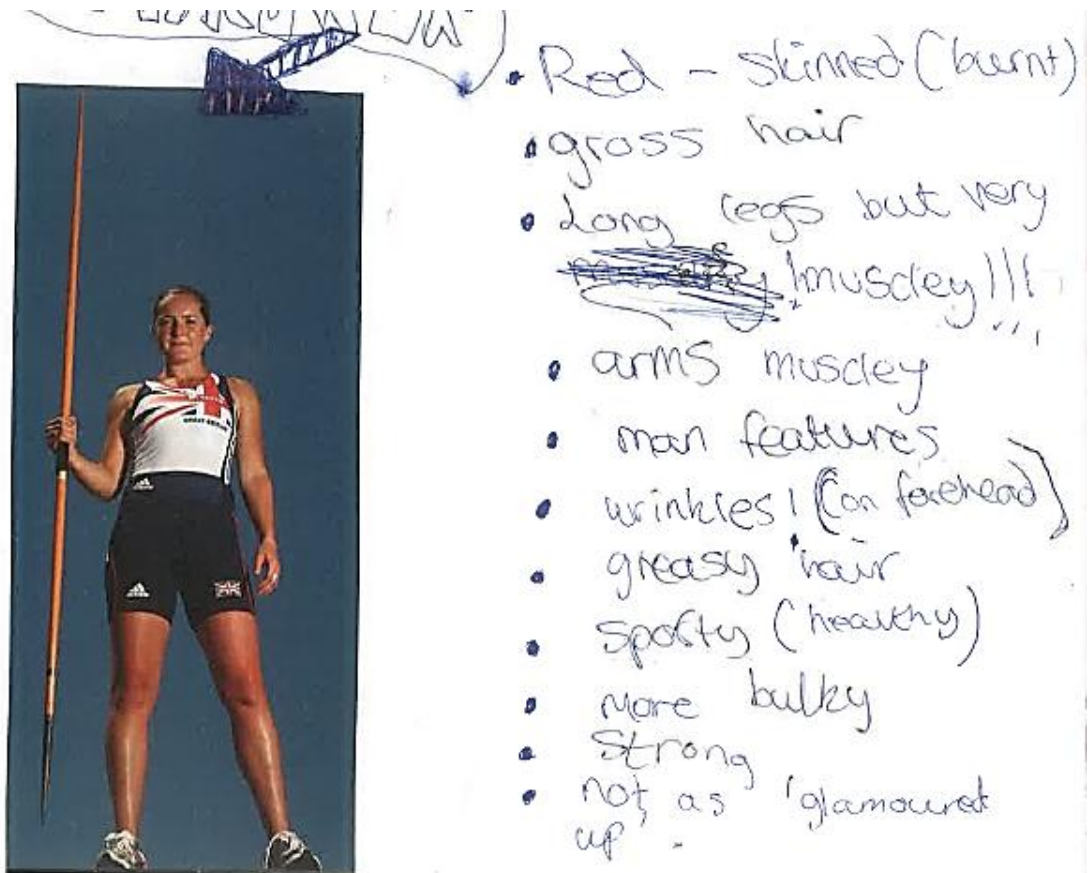 • Red - skinned (burnt)
• gross hair
• Long legs but very
!muscley!!!
• arms muscley
• man features
• wrinkles! (on forehead)
• greasy hair
• Sporty (healthy)
• More bulky
• Strong
• not as 'glamoured
up'.